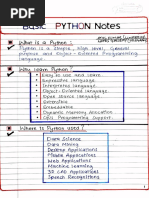 Basic PYTHON Notes
What is a Python :
Python is a simple, high level, General
purpose and object-oriented programming
language.
Why learn Python?
Easy to use and learn
Expressive language
Interpreted language
Object-Oriented language
Open Source language
Extensible
Learn Standard Library
GUI Programming Support
Where is Python used?
Data Science
Data Mining
Desktop Applications
Mobile Applications
Web Applications
Machine learning
3D CAD Applications
Speech Recognitions